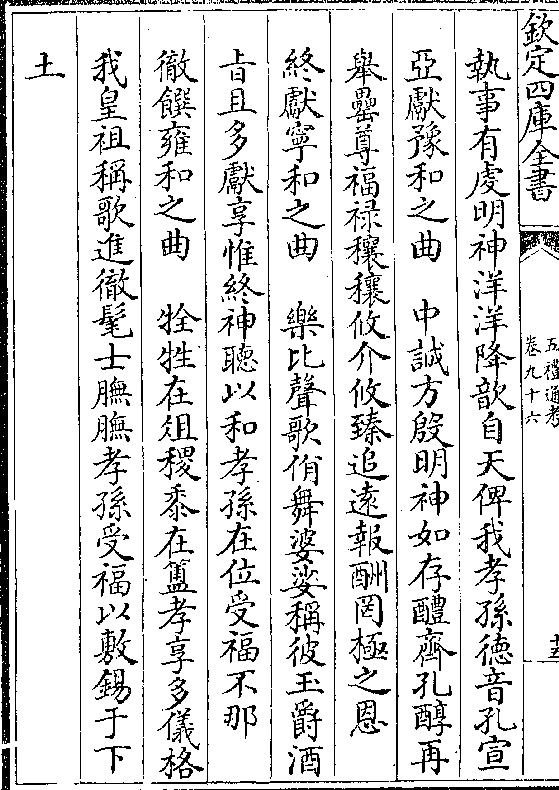 欽定四庫全書
五禮通考
卷九十六
十五
執事有虔明神洋洋降歆自天俾我孝孫德音孔宣
亞獻豫和之曲　中誠方殷明神如存醴齊孔醇再
舉罍尊福祿穰穰攸介攸臻追遠報酬罔極之恩
終獻寧和之曲　樂比聲歌佾舞婆娑稱彼玉爵酒
㫖且多獻享惟終神聽以和孝孫在位受福不那
徹饌雍和之曲　牷牲在俎稷黍在簠孝享多儀格
我皇祖稱歌進徹髦士膴膴孝孫受福以敷錫于下
土